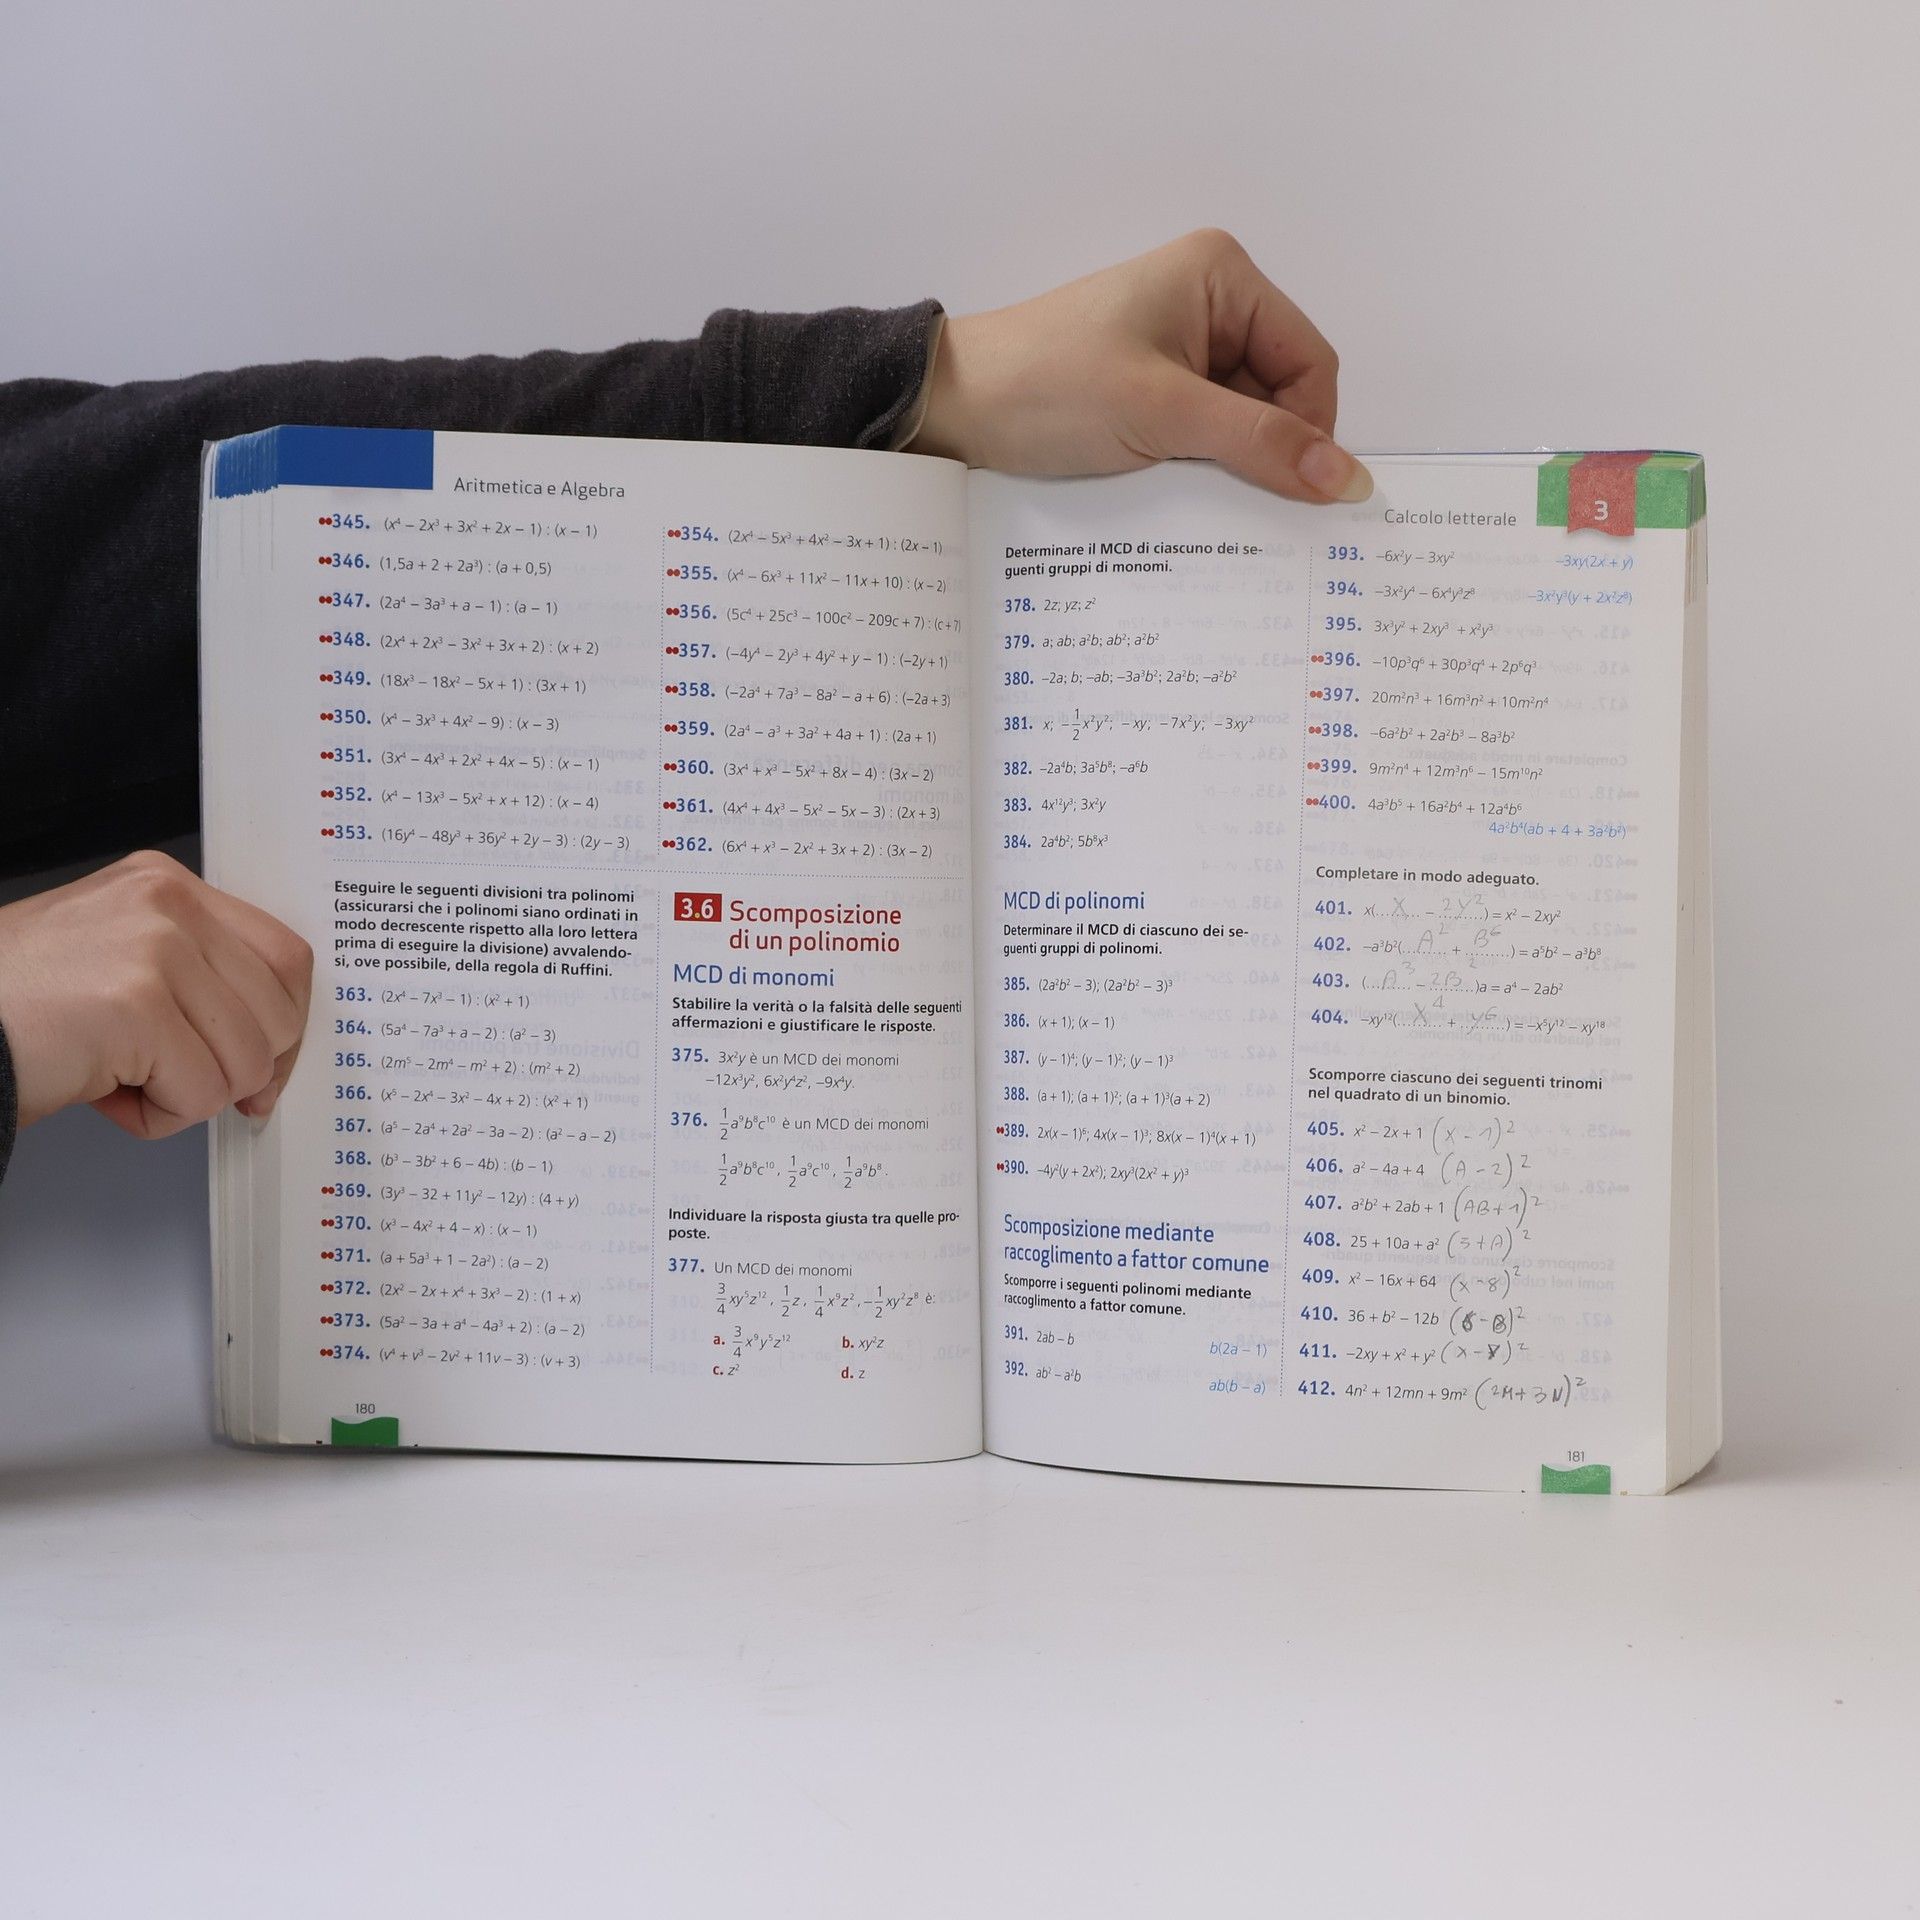 Aritmetica e Algebra
••345. (x⁴ – 2x³ + 3x² + 2x – 1) : (x – 1)
••346. (1,5a + 2 + 2a³) : (a + 0,5)
••347. (2a⁴ – 3a³ + a – 1) : (a – 1)
••348. (2x⁴ + 2x³ – 3x² + 3x + 2) : (x + 2)
••349. (18x³ – 18x² – 5x + 1) : (3x + 1)
••350. (x⁴ – 3x³ + 4x² – 9) : (x – 3)
••351. (3x⁴ – 4x³ + 2x² + 4x – 5) : (x – 1)
••352. (x⁴ – 13x³ – 5x² + x + 12) : (x – 4)
••353. (16y⁴ – 48y³ + 36y² + 2y – 3) : (2y – 3)
••354. (2x⁴ – 5x³ + 4x² – 3x + 1) : (2x – 1)
••355. (x⁴ – 6x³ + 11x² – 11x + 10) : (x – 2)
••356. (5c⁴ + 25c³ – 100c² – 209c + 7) : (c + 7)
••357. (–4y⁴ – 2y³ + 4y² + y – 1) : (–2y + 1)
••358. (–2a⁴ + 7a³ – 8a² – a + 6) : (–2a + 3)
••359. (2a⁴ – a³ + 3a² + 4a + 1) : (2a + 1)
••360. (3x⁴ + x³ – 5x² + 8x – 4) : (3x – 2)
••361. (4x⁴ + 4x³ – 5x² – 5x – 3) : (2x + 3)
••362. (6x⁴ + x³ – 2x² + 3x + 2) : (3x – 2)
Eseguire le seguenti divisioni tra polinomi
(assicurarsi che i polinomi siano ordinati in
modo decrescente rispetto alla loro lettera
prima di eseguire la divisione) avvalendo-
si, ove possibile, della regola di Ruffini.
363. (2x⁴ – 7x³ – 1) : (x² + 1)
364. (5a⁴ – 7a³ + a – 2) : (a² – 3)
365. (2m⁵ – 2m⁴ – m² + 2) : (m² + 2)
366. (x⁵ – 2x⁴ – 3x² – 4x + 2) : (x² + 1)
367. (a⁵ – 2a⁴ + 2a² – 3a – 2) : (a² – a – 2)
368. (b³ – 3b² + 6 – 4b) : (b – 1)
••369. (3y³ – 32 + 11y² – 12y) : (4 + y)
••370. (x³ – 4x² + 4 – x) : (x – 1)
••371. (a + 5a³ + 1 – 2a²) : (a – 2)
••372. (2x² – 2x + x⁴ + 3x³ – 2) : (1 + x)
••373. (5a² – 3a + a⁴ – 4a³ + 2) : (a – 2)
••374. (v⁴ + v³ – 2v² + 11v – 3) : (v + 3)
3.6 Scomposizione
di un polinomio
MCD di monomi
Stabilire la verità o la falsità delle seguenti
affermazioni e giustificare le risposte.
375. 3x²y è un MCD dei monomi
–12x³y², 6x²y⁴z², –9x⁴y.
376. 1/2 a⁹b⁸c¹⁰ è un MCD dei monomi
1/2 a⁹b⁸c¹⁰, 1/2 a⁹c¹⁰, 1/2 a⁹b⁸.
Individuare la risposta giusta tra quelle pro-
poste.
377. Un MCD dei monomi
3/4 xy⁵z¹², 1/2 z, 1/4 x⁹z², –1/2 xy²z⁸ è:
a. 3/4 x⁹y⁵z¹² b. xy²z
c. z² d. z
180
Calcolo letterale 3
Determinare il MCD di ciascuno dei se-
guenti gruppi di monomi.
378. 2z; yz; z²
379. a; ab; a²b; ab²; a²b²
380. –2a; b; –ab; –3a³b²; 2a²b; –a²b²
381. x; –1/2 x²y²; –xy; –7x²y; –3xy²
382. –2a⁴b; 3a⁵b⁸; –a⁶b
383. 4x¹²y³; 3x²y
384. 2a⁴b²; 5b⁸x³
MCD di polinomi
Determinare il MCD di ciascuno dei se-
guenti gruppi di polinomi.
385. (2a²b² – 3); (2a²b² – 3)³
386. (x + 1); (x – 1)
387. (y – 1)⁴; (y – 1)²; (y – 1)³
388. (a + 1); (a + 1)²; (a + 1)³(a + 2)
••389. 2x(x – 1)⁶; 4x(x – 1)³; 8x(x – 1)⁴(x + 1)
••390. –4y²(y + 2x²); 2xy³(2x² + y)³
Scomposizione mediante
raccoglimento a fattor comune
Scomporre i seguenti polinomi mediante
raccoglimento a fattor comune.
391. 2ab – b b(2a – 1)
392. ab² – a²b ab(b – a)
393. –6x²y – 3xy² –3xy(2x + y)
394. –3x²y⁴ – 6x⁴y³z⁸ –3x²y³(y + 2x²z⁸)
395. 3x³y² + 2xy³ + x²y³
••396. –10p³q⁶ + 30p³q⁴ + 2p⁶q³
••397. 20m²n³ + 16m³n² + 10m²n⁴
••398. –6a²b² + 2a²b³ – 8a³b²
••399. 9m²n⁴ + 12m³n⁶ – 15m¹⁰n²
••400. 4a³b⁵ + 16a²b⁴ + 12a⁴b⁶
4a²b⁴(ab + 4 + 3a²b²)
Completare in modo adeguato.
401. x(...X... – ...2Y²...) = x² – 2xy²
402. –a³b²(...A²... + ...B⁶...) = a⁵b² – a³b⁸
403. (...A³... – ...2B²...)a = a⁴ – 2ab²
404. –xy¹²(...X⁴... + ...y⁶...) = –x⁵y¹² – xy¹⁸
Scomporre ciascuno dei seguenti trinomi
nel quadrato di un binomio.
405. x² – 2x + 1 (X – 1)²
406. a² – 4a + 4 (A – 2)²
407. a²b² + 2ab + 1 (AB + 1)²
408. 25 + 10a + a² (5 + A)²
409. x² – 16x + 64 (x – 8)²
410. 36 + b² – 12b (6 – B)²
411. –2xy + x² + y² (x – Y)²
412. 4n² + 12mn + 9m² (2M + 3N)²
181